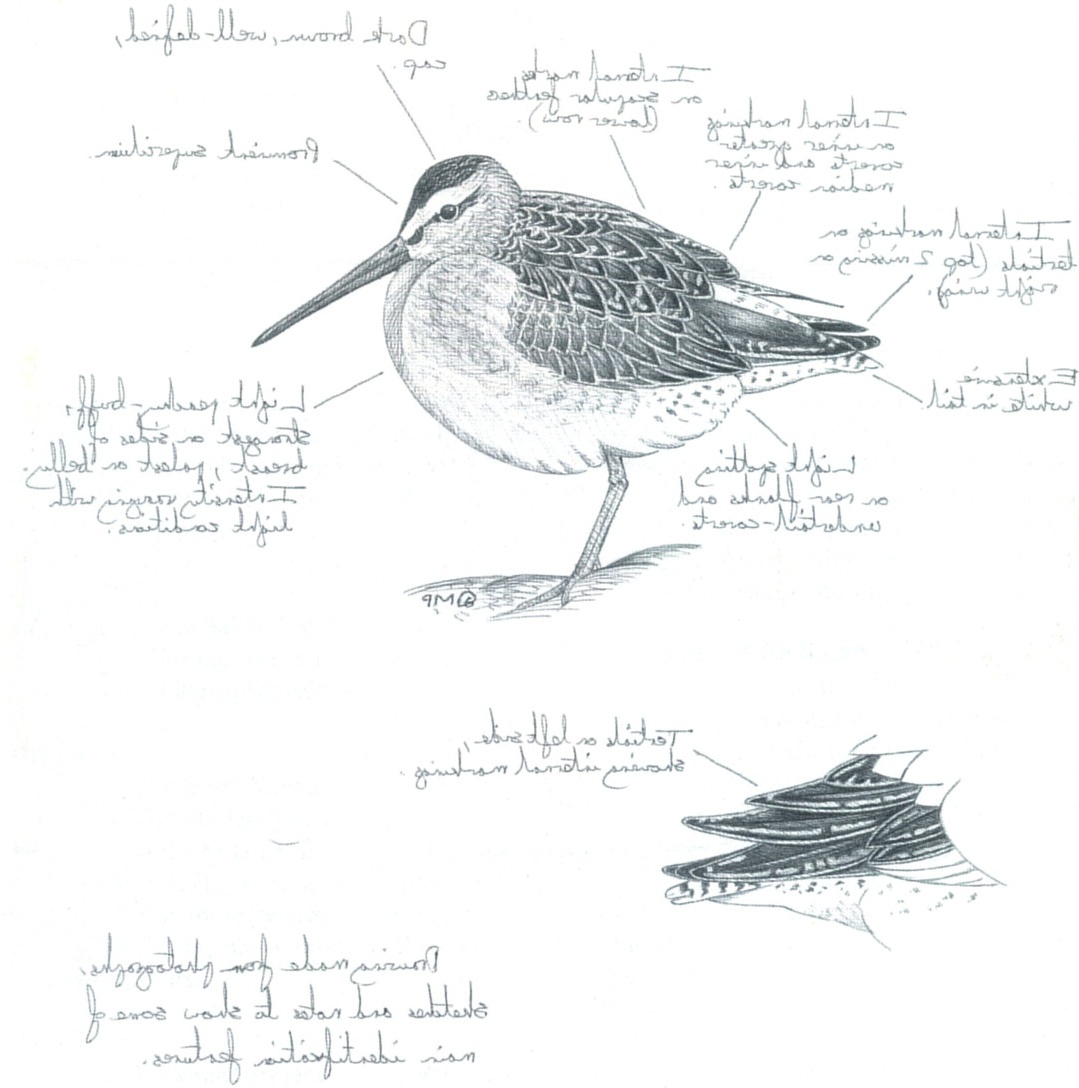 Dark brown, well-defined,
cap.
Prominent supercilium.
Internal marks
on scapular feathers
(lower rows)
Internal markings
on inner greater
coverts and inner
median coverts.
Internal markings on
tertials (top 2 missing on
right wing).
Extensive
white in tail.
Light peachy-buff,
strongest on sides of
breast, palest on belly.
Intensity varying with
light conditions.
Light spotting
on rear flanks and
undertail-coverts.
Tertials on left side,
showing internal markings.
Drawing made from photographs,
sketches and notes to show some of
main identification features.